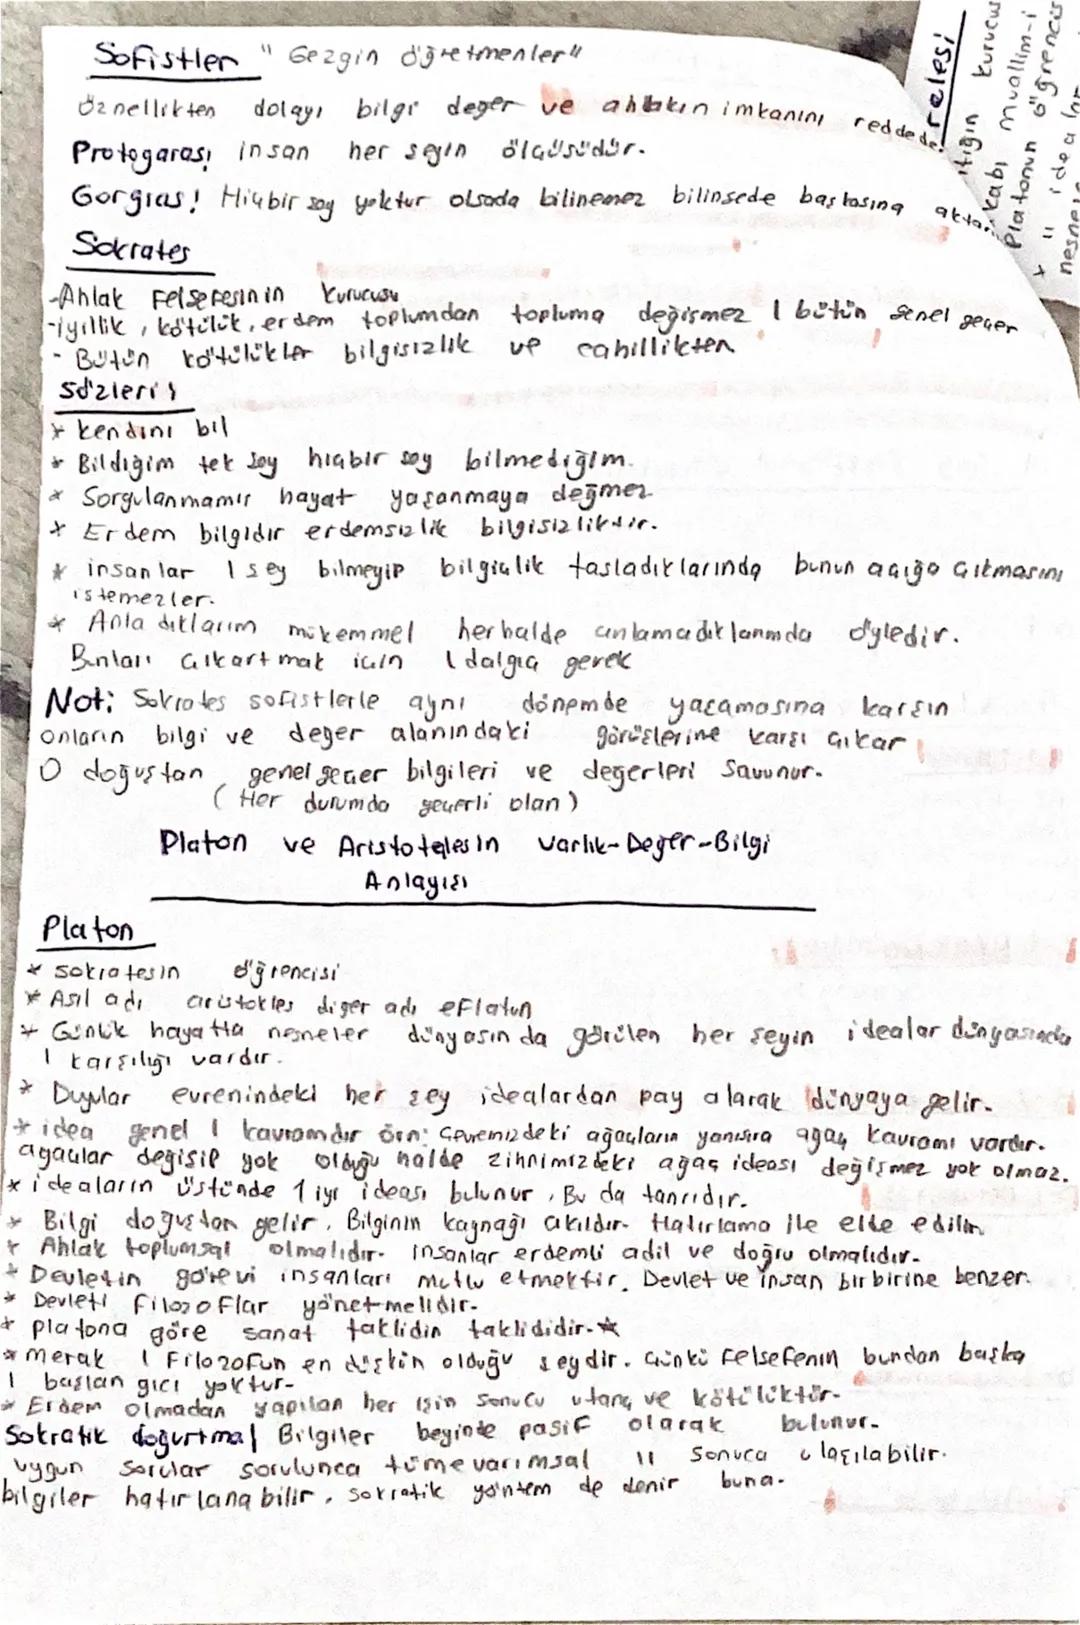 Sofistler "Gezgin öğretmenler"
Öznellikten dolayı bilgi değer ve ahlakın imkanını reddede
Protogaras: insan her şeyin ölçüsüdür.
Gorgias: Hiçbir şey yoktur olsada bilinemez bilinsede başkasına aktarı
Sokrates
-Ahlak Felsefesinin kurucusu
-iyillik, kötülük, erdem toplumdan topluma değişmez 1 bütün genel geçer
- Bütün kötülükler bilgisizlik ve cahillikten
sözleri:
* kendini bil
* Bildiğim tek şey hiçbir şey bilmediğim.
* Sorgulanmamış hayat yaşanmaya değmez
* Erdem bilgidir erdemsizlik bilgisizliktir.
* insanlar 1 şey bilmeyip bilgiçlik tasladıklarında bunun açığa çıkmasını
istemezler.
* Anladıklarım mükemmel herhalde anlamadıklarımda öyledir.
Bunları çıkartmak için 1 dalgıç gerek
Not: Sokrates sofistlerle aynı dönemde yaşamasına karşın
onların bilgi ve değer alanındaki görüşlerine karşı çıkar
O doğuştan genel geçer bilgileri ve değerleri savunur.
(Her durumda geçerli olan)
Platon ve Aristotelesin Varlık-Değer-Bilgi
Anlayışı
Platon
* sokratesin öğrencisi
* Asıl adı aristokles diğer adı eflatun
* Günlük hayatta nesneler dünyasında görülen her şeyin idealar dünyasında
1 karşılığı vardır.
* Duyular evrenindeki her şey idealardan pay alarak dünyaya gelir.
* idea genel 1 kavramdır örn: Çevremizdeki ağaçların yanısıra ağaç kavramı vardır.
ağaçlar değişip yok olduğu halde zihnimizdeki ağaç ideası değişmez yok olmaz.
* ideaların üstünde 1 iyi ideası bulunur. Bu da tanrıdır.
* Bilgi doğuştan gelir. Bilginin kaynağı akıldır. Hatırlama ile elde edilir
* Ahlak toplumsal olmalıdır. insanlar erdemli adil ve doğru olmalıdır.
* Devletin görevi insanları mutlu etmektir. Devlet ve insan birbirine benzer.
* Devleti filozoflar yönetmelidir.
* platona göre sanat taklidin taklididir.☆
* merak 1 Filozofun en düşkün olduğu şeydir. Çünkü felsefenin bundan başka
1 başlangıcı yoktur.
* Erdem olmadan yapılan her işin sonucu utanç ve kötülüktür.
Sokratik doğurtma| Bilgiler beyinde pasif olarak bulunur.
uygun sorular sorulunca tümevarımsal 11 sonuca ulaşılabilir.
bilgiler hatırlanabilir. sokratik yöntem de denir buna.
relesi
ttiğin kurucus
kabı muallim-i
Platonun öğrencis
* " idealar